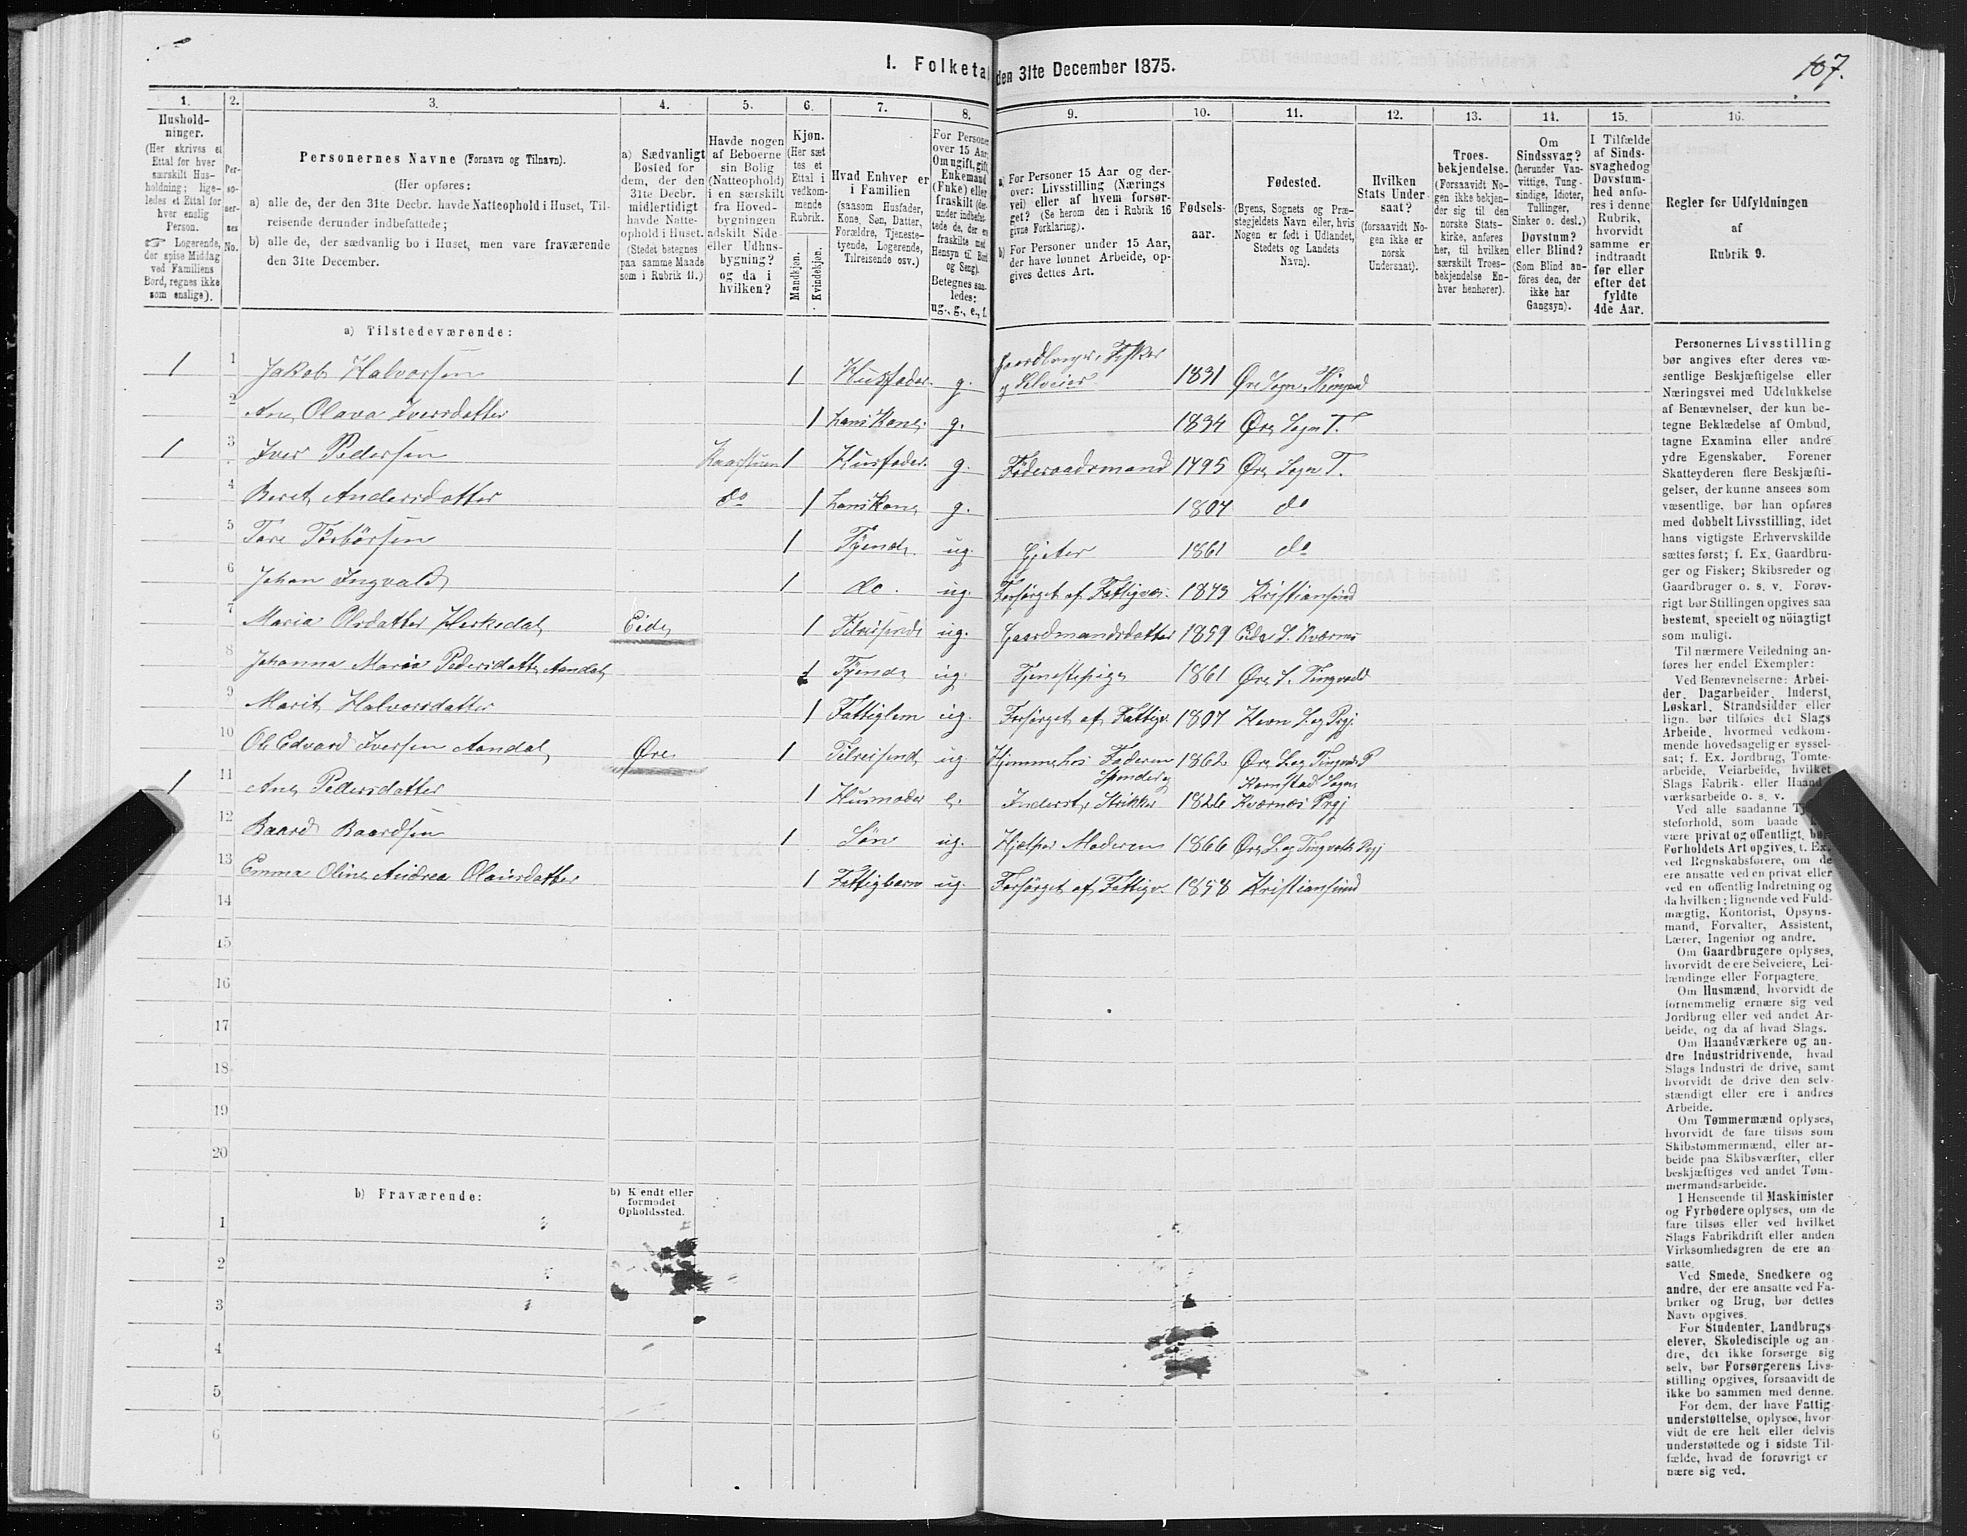 107.
1. Folketal den 31te December 1875.
1. 2. 3. 4. 5. 6. 7. 8. 9. 10. 11. 12. 13. 14. 15. 16.
Hushold-
ninger.
(Her skrives et
Ettal for hver
særskilt Hus-
holdning; lige-
ledes et Ettal for
hver enslig
Person.
☞ Logerende,
der spise Middag
ved Familiens
Bord, regnes ikke
som enslige).
Per-
so-
ner-
nes
No.
Personernes Navne (Fornavn og Tilnavn).
(Her opføres:
a) alle de, der den 31te Decbr. havde Natteophold i Huset, Til-
reisende derunder indbefattede;
b) alle de, der sædvanlig bo i Huset, men vare fraværende
den 31te December.
a) Sædvanligt
Bosted for
dem, der den
31te Decbr.
midlertidigt
havde Natte-
ophold i Huset.
(Stedet betegnes
paa samme Maade
som i Rubrik 11.)
Havde nogen
af Beboerne
sin Bolig
(Natteophold)
i en særskilt
fra Hoved-
bygningen
adskilt Side-
eller Udhus-
bygning?
og da i
hvilken?
Kjøn.
(Her sæt
tes et
Ettal i
vedkom-
mende
Rubrik.
Mandkjøn.
Kvindekjøn.
Hvad Enhver er
i Familien
(saasom Husfader,
Kone, Søn, Datter,
Forældre, Tjeneste-
tyende, Logerende,
Tilreisende osv.)
For Personer
over 15 Aar:
Om ugift, gift,
Enkemand
(Enke) eller
fraskilt (der-
under indbefat-
tede de, der ere
fraskilte med
Hensyn til Bord
og Seng).
Betegnes saa-
ledes:
ug., g., e., f.
a) For Personer 15 Aar og der-
over: Livsstilling (Nærings
vei) eller af hvem forsør-
get? (Se herom den i Rubrik 16
givne Forklaring).
b) For Personer under 15 Aar,
der have lønnet Arbeide, op-
gives dettes Art.
Fødsels-
aar.
Fødested.
(Byens, Sognets og Præ-
stegjeldets Navn eller, hvis
Nogen er født i Udlandet,
Stedets og Landets
Navn).
Hvilken
Stats Under
saat?
(forsaavidt No-
gen ikke er
norsk
Undersaat).
Troes-
bekjendelse.
(Forsaavidt No-
gen ikke bekjen-
der sig til den
norske Stats-
kirke, anføres
her, til hvilken
særskilt Troes-
bekjendelse En-
hver henhører).
Om
Sindssvag?
(herunder Van-
vittige, Tung-
sindige, Idioter,
Tullinger,
Sinker o. desl.)
Døvstum?
eller Blind?
(Som Blind an-
føres den, der
ikke har
Gangsyn).
I Tilfælde
af Sinds-
svaghed og
Døvstum-
hed anfø-
res i denne
Rubrik,
hvorvidt
samme er
indtraadt
før eller
efter det
fyldte
4de Aar.
Regler for Udfyldningen
af
Rubrik 9.
a) Tilstedeværende:
1 1 Jakob Halvorsen 1 Husfader g. Gaardbruger, Fisker og Selveier 1831 Øre Sogn,
2 Ane Olava Iversdatter 1 hans Kone g. 1834 Øre Sogn T.
1 3 Iver Pedersen Kaarstuen 1 Husfader g. Føderaadsmand 1795 Øre Sogn T.
4 Beret Andersdatter do 1 hans Kone g. 1807 do
5 Tore Torbörsen 1 Tyende ug. Gjeter 1861 do
6 Johan Ingvald 1 do. ug. Forsörget af Fattigvæs. 1873 Kristiansund
7 Maria Olsdatter Herskedal Eide 1 Tilreisende ug. Gaardmandsdatter 1859 Eide S. Kværnes
8 Johanna Maria Pedersdatter Aandal 1 Tyende ug. Tjenestepige 1861 Øre S. Tingvold
9 Marit Halvorsdatter 1 Fattiglem ug. Forsörget af Fattigv. 1807 Hevn S. og Prgj
10 Ole Edvard Iversen Aandal Øre 1 Tilreisende ug. Hjemme hos Faderen 1862 Øre S. og Tingvold P
1 11 Ane Pedersdatter 1 Husmoder e. Inderst, Spinder og Strikker 1826 Kornstad Sogn, Kværnes Prgj
12 Baard Baardsen 1 Søn ug. Hjælper Moderen 1866 Øre S. og Tingvolds Prgj
13 Emma Oline Andrea Olausdatter 1 Fattigbarn ug. Forsörget af Fattigv. 1858 Kristiansund
14
15
16
17
18
19
20
b) Fraværende:
b) Kjendt eller
formodet
Opholdssted.
1
2
3
4
5
6
Personernes Livsstilling
bør angives efter deres væ-
sentlige Beskjæftigelse eller
Næringsvei med Udelukkelse
af Benævnelser, der kun be-
tegne Beklædelse af Ombud,
tagne Examina eller andre
ydre Egenskaber. Forener
Skatteyderen flere Beskjæfti-
gelser, der kunne ansees som
væsentlige, bør han opføres
med dobbelt Livsstilling, idet
hans vigtigste Erhvervskilde
sættes først; f. Ex. Gaardbru-
ger og Fisker; Skibsreder og
Gaardbruger o. s. v. Forøv-
rigt bør Stillingen opgives saa
bestemt, specielt og nöiagtigt
som muligt.
Til nærmere Veiledning an-
føres her endel Exempler:
Ved Benævnelserne: Arbei-
der, Dagarbeider, Inderst,
Løskarl, Strandsidder eller
lign. bør tilføies det Slags
Arbeide, hvormed vedkom-
mende hovedsagelig er syssel-
sat; f. Ex. Jordbrug, Tomte-
arbeide, Veiarbeide, hvilket
Slags Fabrik- eller Haand-
værksarbeide o. s. v.
Ved alle saadanne Tjene-
steforhold, som baade kan
være privat og offentligt, bør
Forholdets Art opgives, t. Ex.
ved Regnskabsførere, om de
ere ansatte ved en privat eller
ved en offentlig Indretning og
da hvilken; lignende ved Fuld-
mægtig, Kontorist, Opsyns-
mand, Forvalter, Assistent,
Lærer, Ingeniør og andre.
Om Gaardbrugere oplyses,
hvorvidt de ere Selveiere, Lei-
lændinge eller Forpagtere.
Om Husmænd, hvorvidt de
fornemmelig ernære sig ved
Jordbrug eller ved andet Ar-
beide, og da af hvad Slags.
Om Haandværkere og an-
dre Industridrivende, hvad
Slags Industri de drive, samt
hvorvidt de drive den selv-
stændigt eller ere i andres
Arbeide.
Om Tømmermænd oplyses,
hvorvidt de fare tilsøs som
Skibstømmermænd, eller ar-
beide paa Skibsværfter, eller
beskjæftiges ved andet Tøm-
mermandsarbeide.
I Henseende til Maskinister
og Fyrbødere oplyses, om de
fare tilsøs eller ved hvilket
Slags Fabrikdrift eller anden
Virksomhedsgren de ere an
satte.
Ved Smede, Snedkere og
andre, der ere ansatte ved Fa-
briker og Brug, bør dettes
Navn opgives.
For Studenter, Landbrugs
elever, Skoledisciple og an-
dre, der ikke forsørge sig
selv, bør Forsørgerens Livs-
stilling opgives, forsaavidt de
ikke bo sammen med denne.
For dem, der have Fattig-
understøttelse, oplyses, hvor-
vidt de ere helt eller delvis
understøttede og i sidste Til-
fælde, hvad de forøvrigt er
nære sig ved.